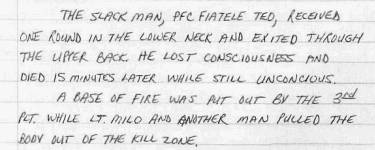 THE SLACK MAN, PFC FIATELE TEO, RECEIVED
ONE ROUND IN THE LOWER NECK AND EXITED THROUGH
THE UPPER BACK. HE LOST CONSCIOUSNESS AND
DIED 15 MINUTES LATER WHILE STILL UNCONCIOUS.
A BASE OF FIRE WAS PUT OUT BY THE 3rd
PLT. WHILE LT. MILO AND ANOTHER MAN PULLED THE
BODY OUT OF THE KILL ZONE.